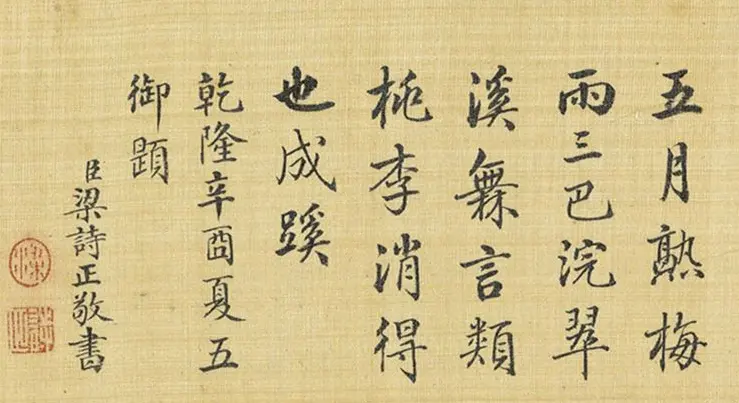 五月熟梅
雨三巴浣翠
溪橆言類
桃李消得
也成蹊
乾隆辛酉夏五
御題
臣梁詩正敬書